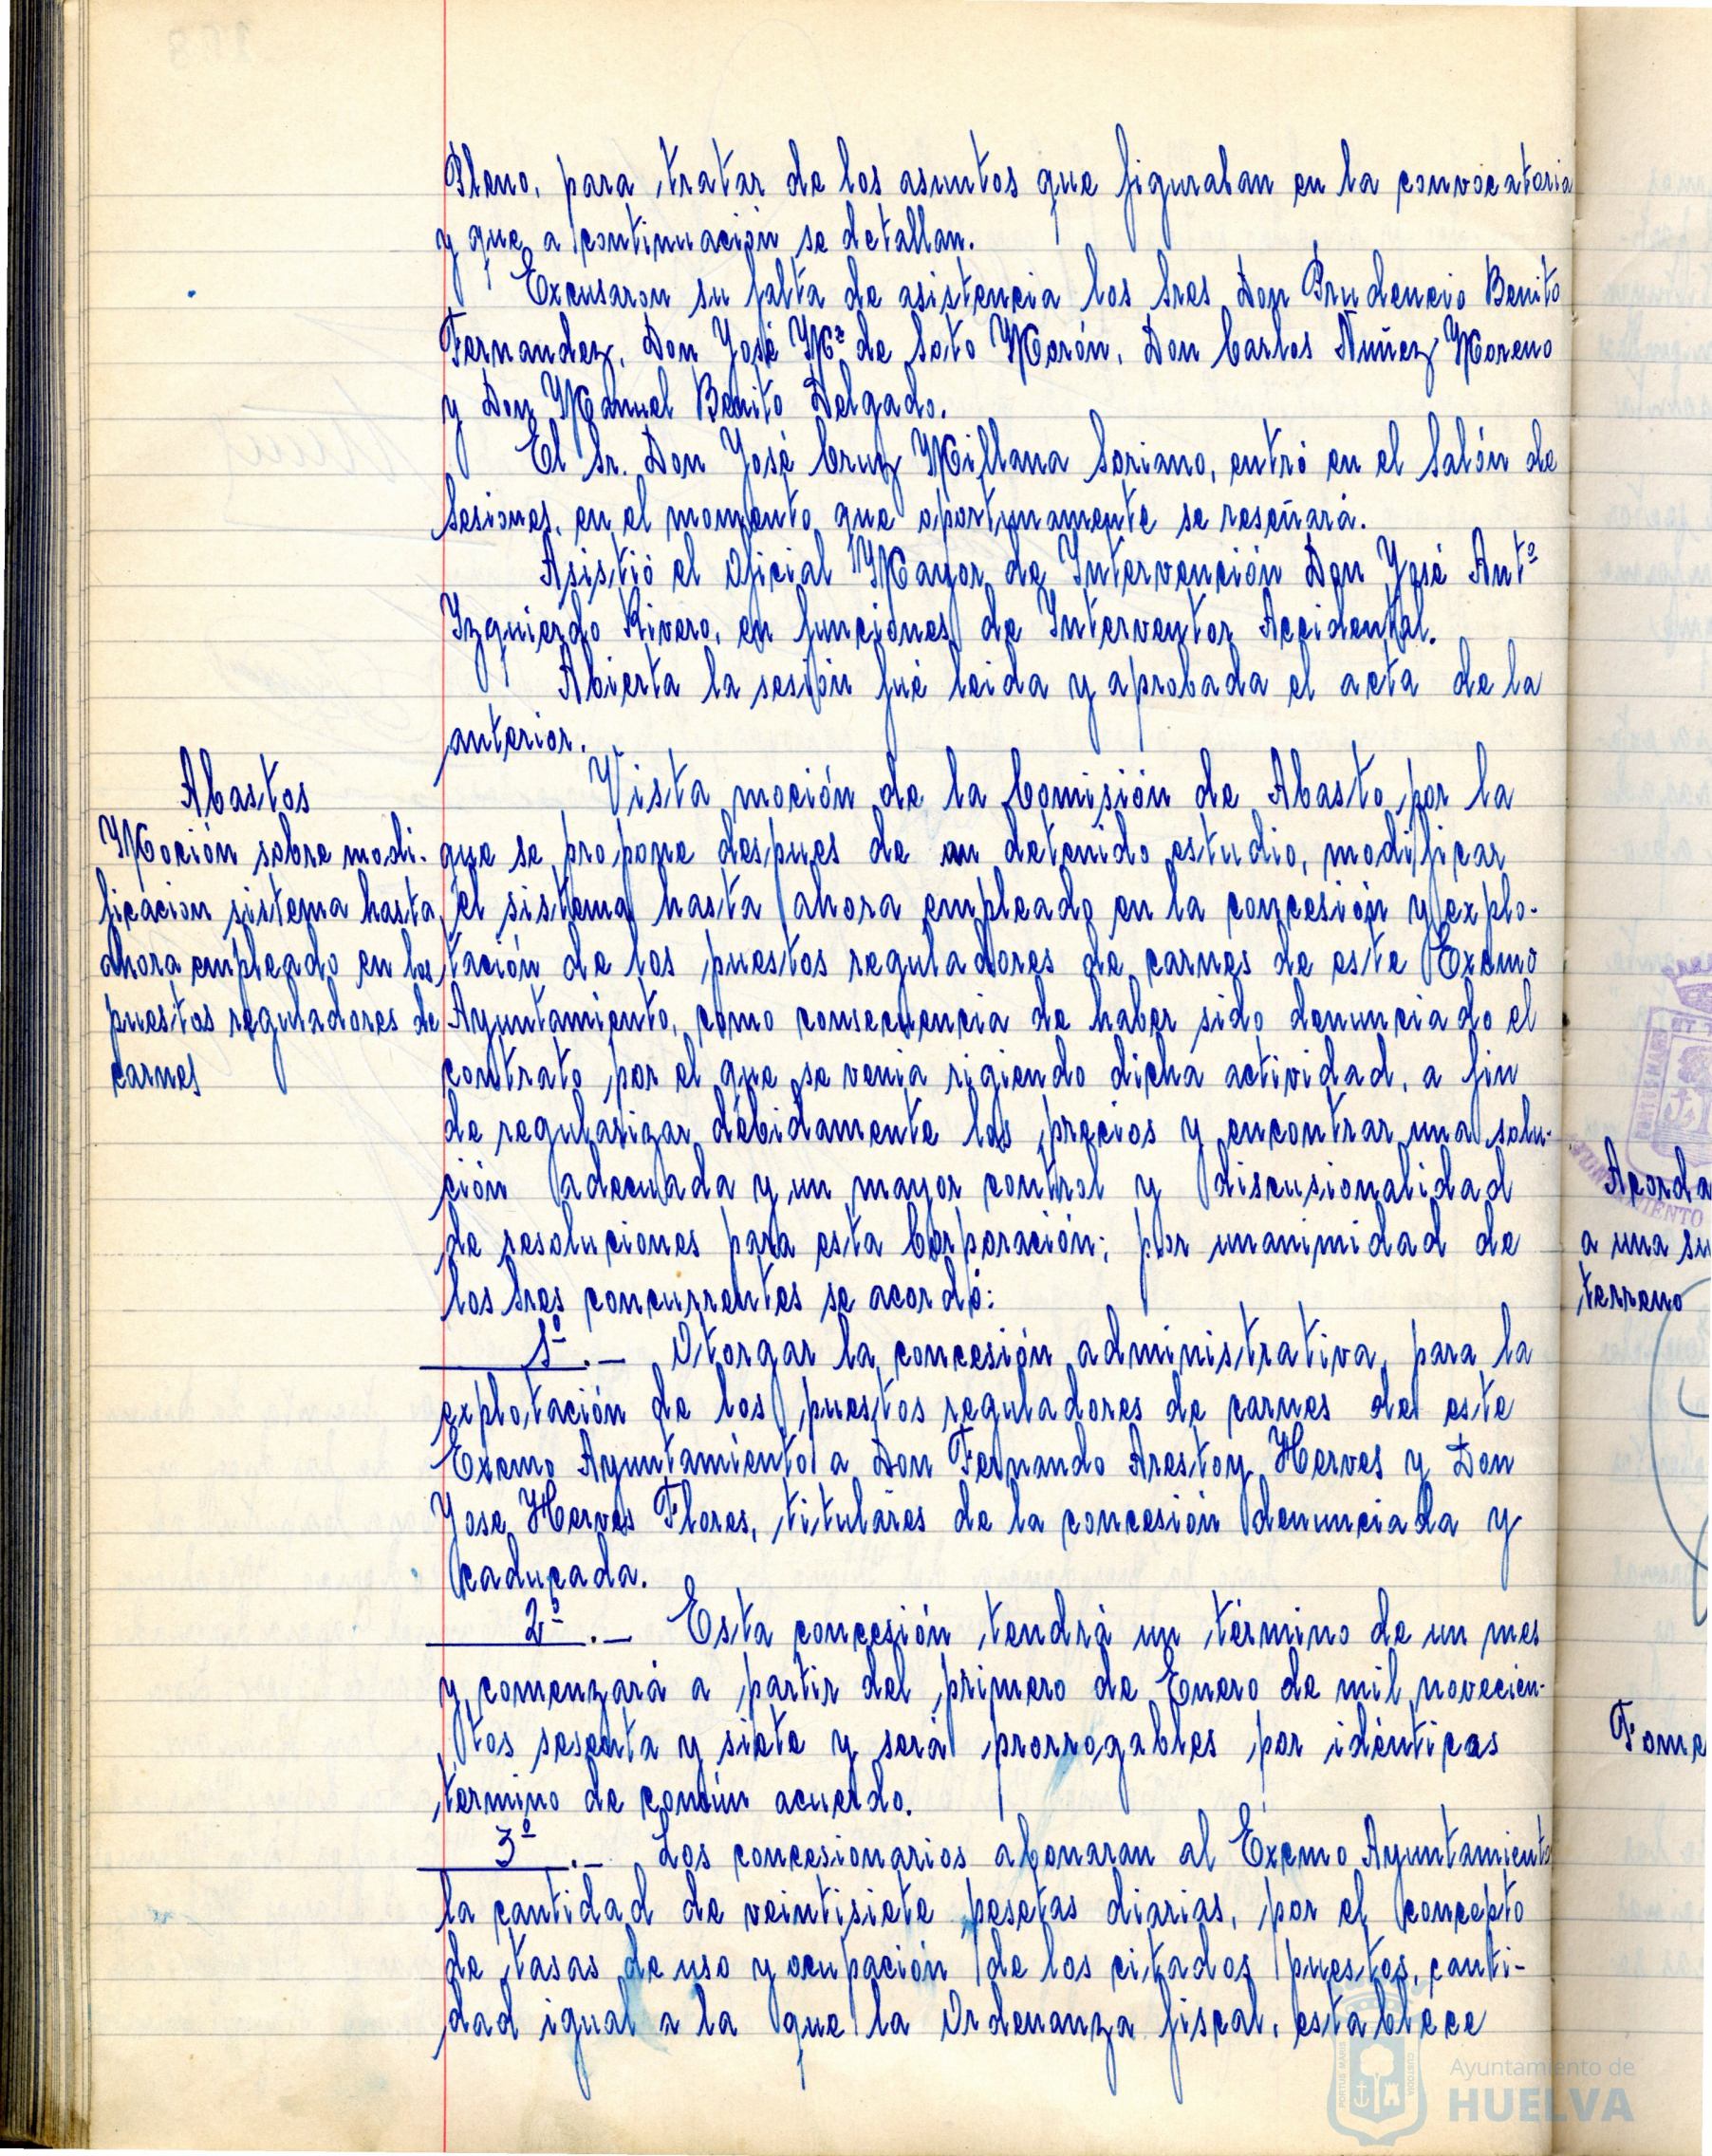 Pleno, para tratar de los asuntos que figuraban en la convocatoria
y que a continuación se detallan.
Excusaron su falta de asistencia los Sres Don Prudencio Benito
Fernandez, Don José Mª de Soto Morón, Don Carlos Nuñez Moreno
y Don Manuel Benito Delgado.
El Sr. Don José Cruz Millana Soriano, entró en el Salón de
Sesiones, en el momento que oportunamente se reseñará.
Asistió el Oficial Mayor de Intervención Don José Antº
Izquierdo Rivero, en funciones de Interventor Accidental.
Abierta la sesión fué leida y aprobada el acta de la
anterior.
Abastos
Moción sobre modi-
ficación sistema hasta
ahora empleado en los
puestos reguladores de
carnes
Vista moción de la Comisión de Abasto por la
que se propone despues de un detenido estudio, modificar
el sistema hasta ahora empleado en la concesión y explo-
tación de los puestos reguladores de carnes de este Excmo
Ayuntamiento, como consecuencia de haber sido denunciado el
contrato por el que se venia rigiendo dicha actividad, a fin
de regularizar debidamente los precios y encontrar una solu-
ción adecuada y un mayor control y discusionalidad
de resoluciones para esta Corporación; por unanimidad de
los Sres concurrentes se acordó:
1º.— Otorgar la concesión administrativa, para la
explotación de los puestos reguladores de carnes del este
Excmo Ayuntamiento a Don Fernando Arestoy Herves y Don
Jose Herves Flores, titulares de la concesión denunciada y
caducada.
2º.— Esta concesión tendrá un término de un mes
y comenzará a partir del primero de Enero de mil novecien-
tos sesenta y siete y será prorrogables por idénticas
termino de común acuerdo.
3º.— Los concesionarios abonaran al Excmo Ayuntamiento
la cantidad de veintisiete pesetas diarias, por el concepto
de tasas de uso y ocupación de los citados puestos, canti-
dad igual a la que la Ordenanza fiscal, establece
Acorda
a una su
terreno
Fome
Ayuntamiento de
HUELVA